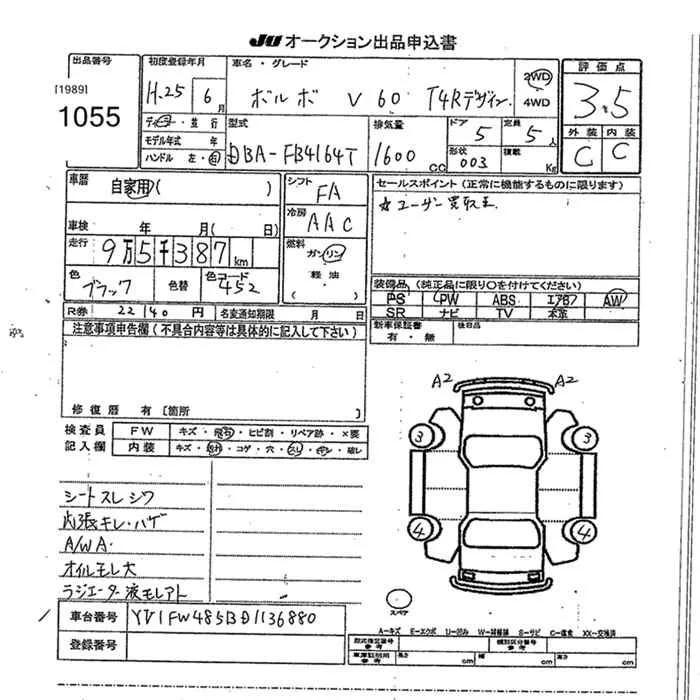 JU オークション出品申込書
出品番号
[1989]
1055
初度登録年月
H.25 6月
車名・グレード
ボルボ V60 T4Rデザイン
2WD
4WD
評価点
3.5
外装 内装
C C
ディーラー・並行
モデル年式 年
ハンドル 左・右
型式
DBA-FB4164T
排気量
1600 CC
ドア 5
定員 5人
形状 003
積載 Kg
車暦 自家用( )
車検 年 月( 日)
走行 9万5千387km
色 ブラック
色替
色コード 452
シフト FA
冷房 AAC
燃料
ガソリン
軽油
( )
セールスポイント(正常に機能するものに限ります)
☆ユーザー買取車
装備品(純正品に限り○を付けてください)
PS PW ABS エアB AW
SR ナビ TV 本革
R券 22140円 名変通知期限 月 日
新車保証書 後日品
有・無
注意事項申告欄(不具合内容等は具体的に記入して下さい)
修復暦 有[箇所 ]
検査員
記入欄
FW キズ・飛石・ヒビ割・リペア跡・×要
内装 キズ・コゲ・穴・スレ・キレ・破レ
シートスレシワ
内張キレ・ハゲ
A/WA.
オイルモレ大
ラジエーター液モレアト
A2 A2
3 3
4 4
スペア
車台番号 YV1FW485BD1136880
登録番号
A―キズ E―エクボ U―凹み W―補修跡 S―サビ C―腐食 XX―交換済
型式指定番号 参考
類別区分番号 参考
車庫証明用 参考
長さ cm 幅 cm 高さ cm